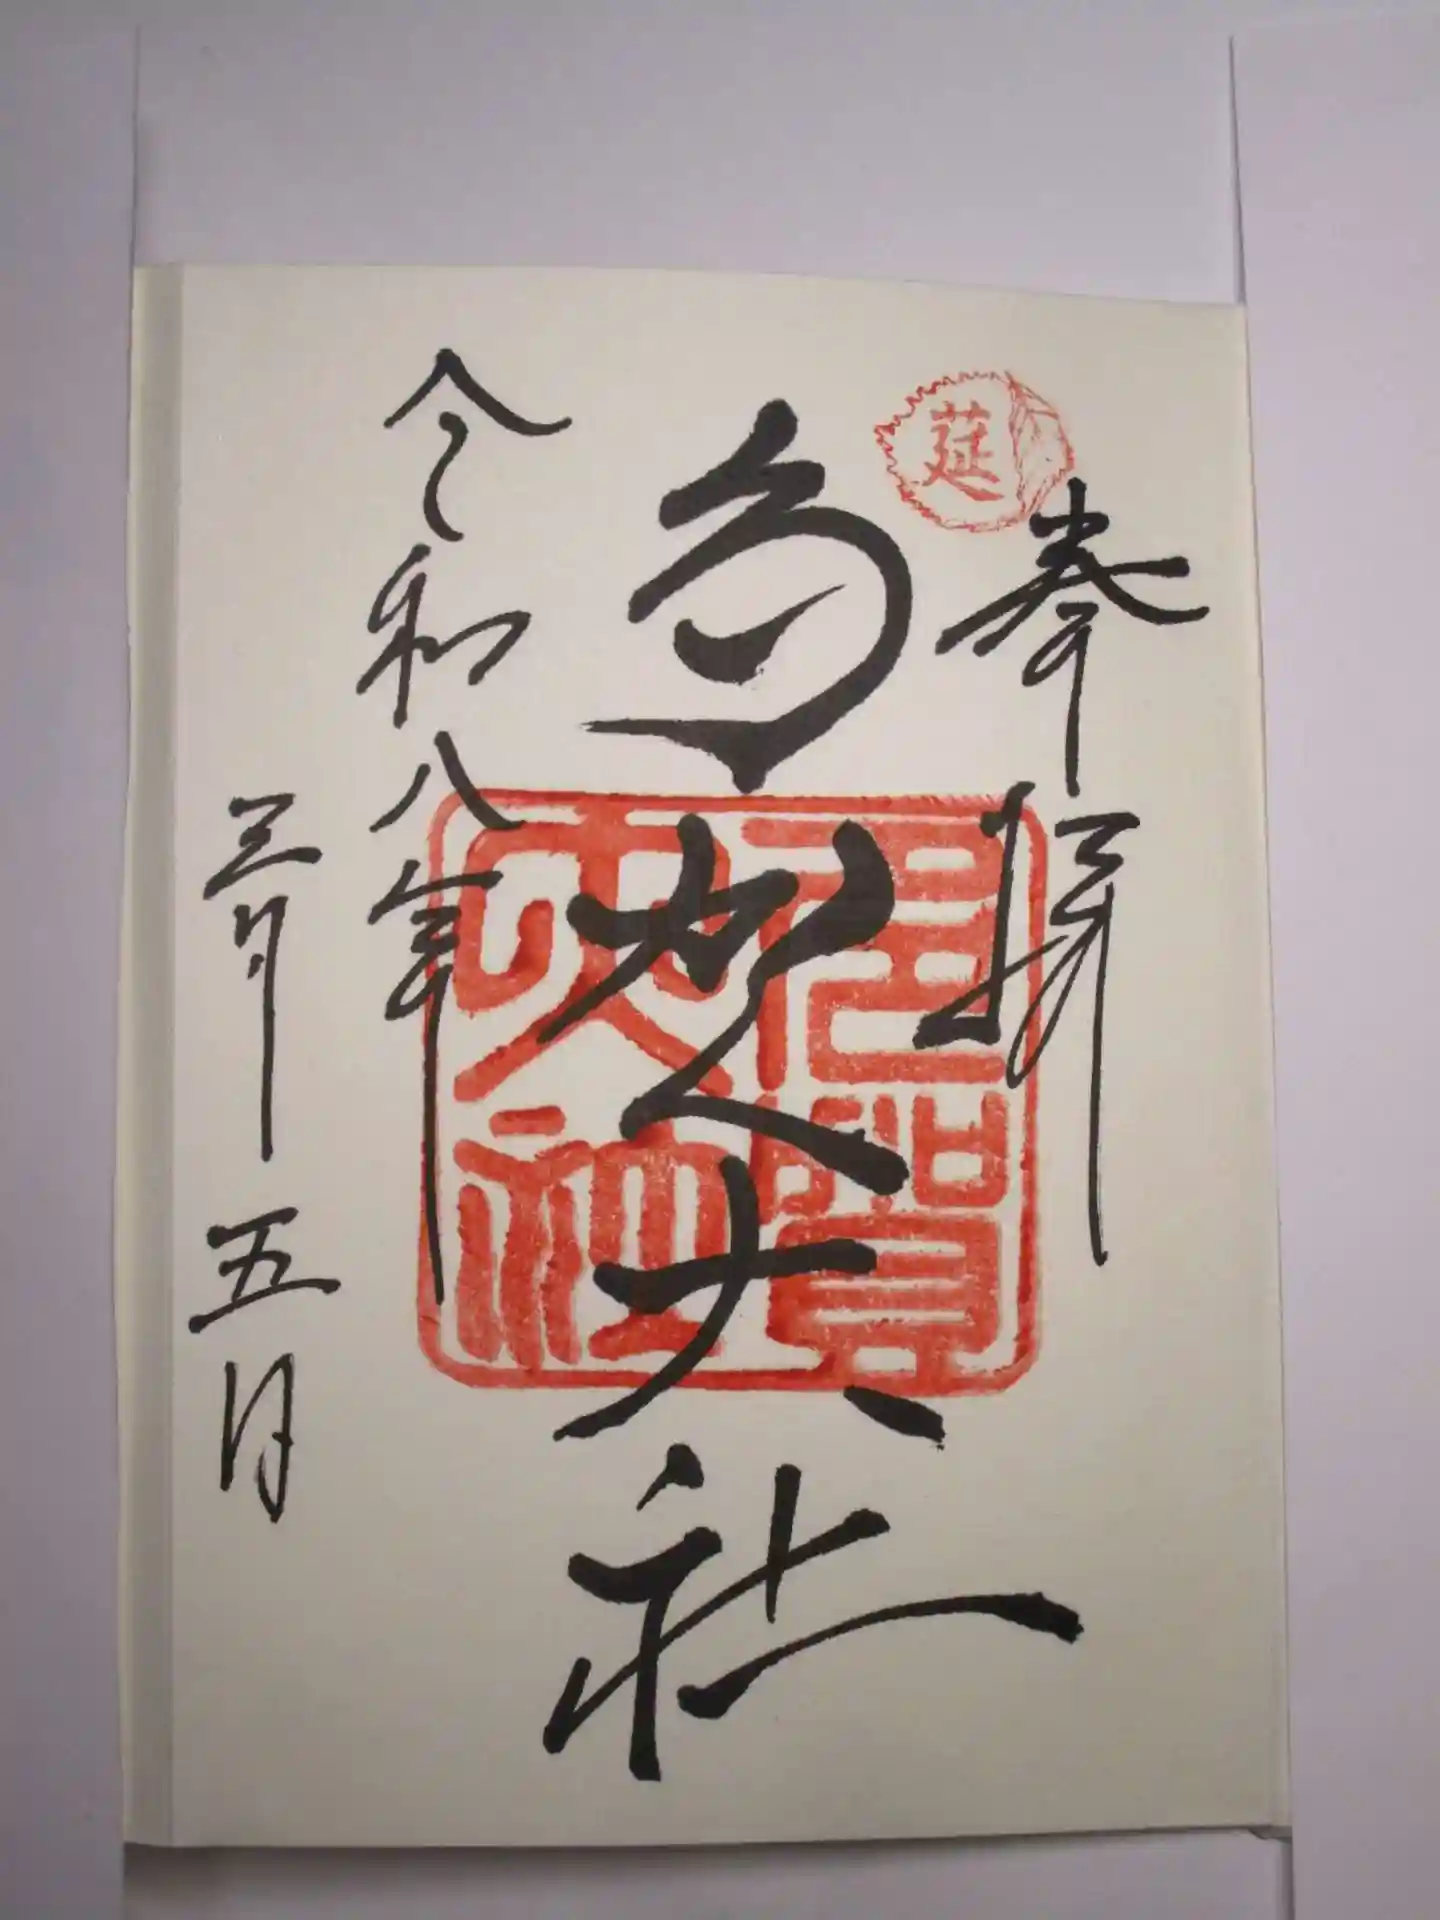 莚
奉拝
多賀大社
多賀
大社
令和八年
三月五日